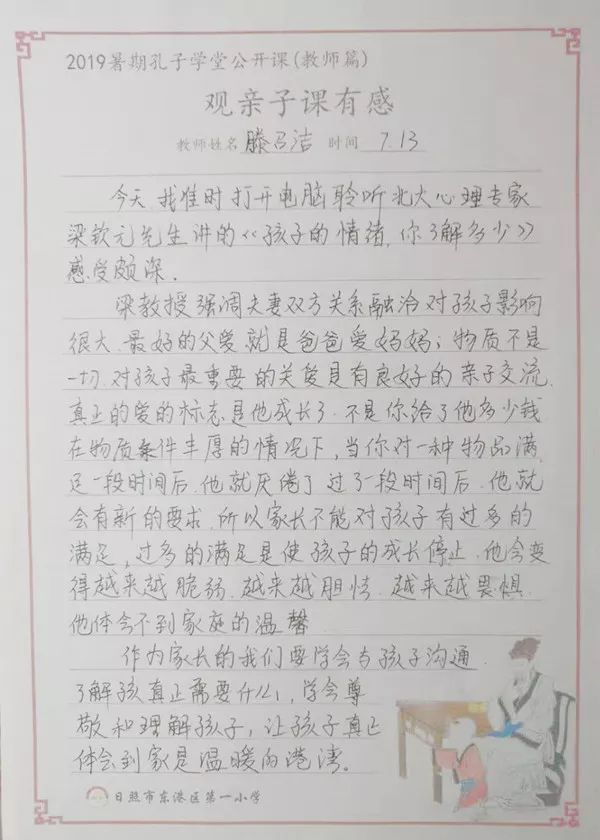 2019暑期孔子学堂公开课(教师篇)
观亲子课有感
教师姓名 滕召洁 时间 7.13
今天,我准时打开电脑聆听北大心理专家
梁钦元先生讲的《孩子的情绪,你了解多少》
感受颇深.
梁教授强调夫妻双方关系融洽对孩子影响
很大.最好的父爱就是爸爸爱妈妈;物质不是
一切.对孩子最重要的关爱是有良好的亲子交流.
真正的爱的标志是他成长了.不是你给了他多少钱.
在物质条件丰厚的情况下,当你对一种物品满
足一段时间后.他就厌倦了过了一段时间后.他就
会有新的要求.所以家长不能对孩子有过多的
满足,过多的满足是使孩子的成长停止.他会变
得越来越脆弱.越来越胆怯.越来越畏惧.
他体会不到家庭的温馨
作为家长的我们要学会与孩子沟通.
了解孩真正需要什么,学会尊
敬和理解孩子,让孩子真正
体会到家是温暖的港湾。
日照市东港区第一小学